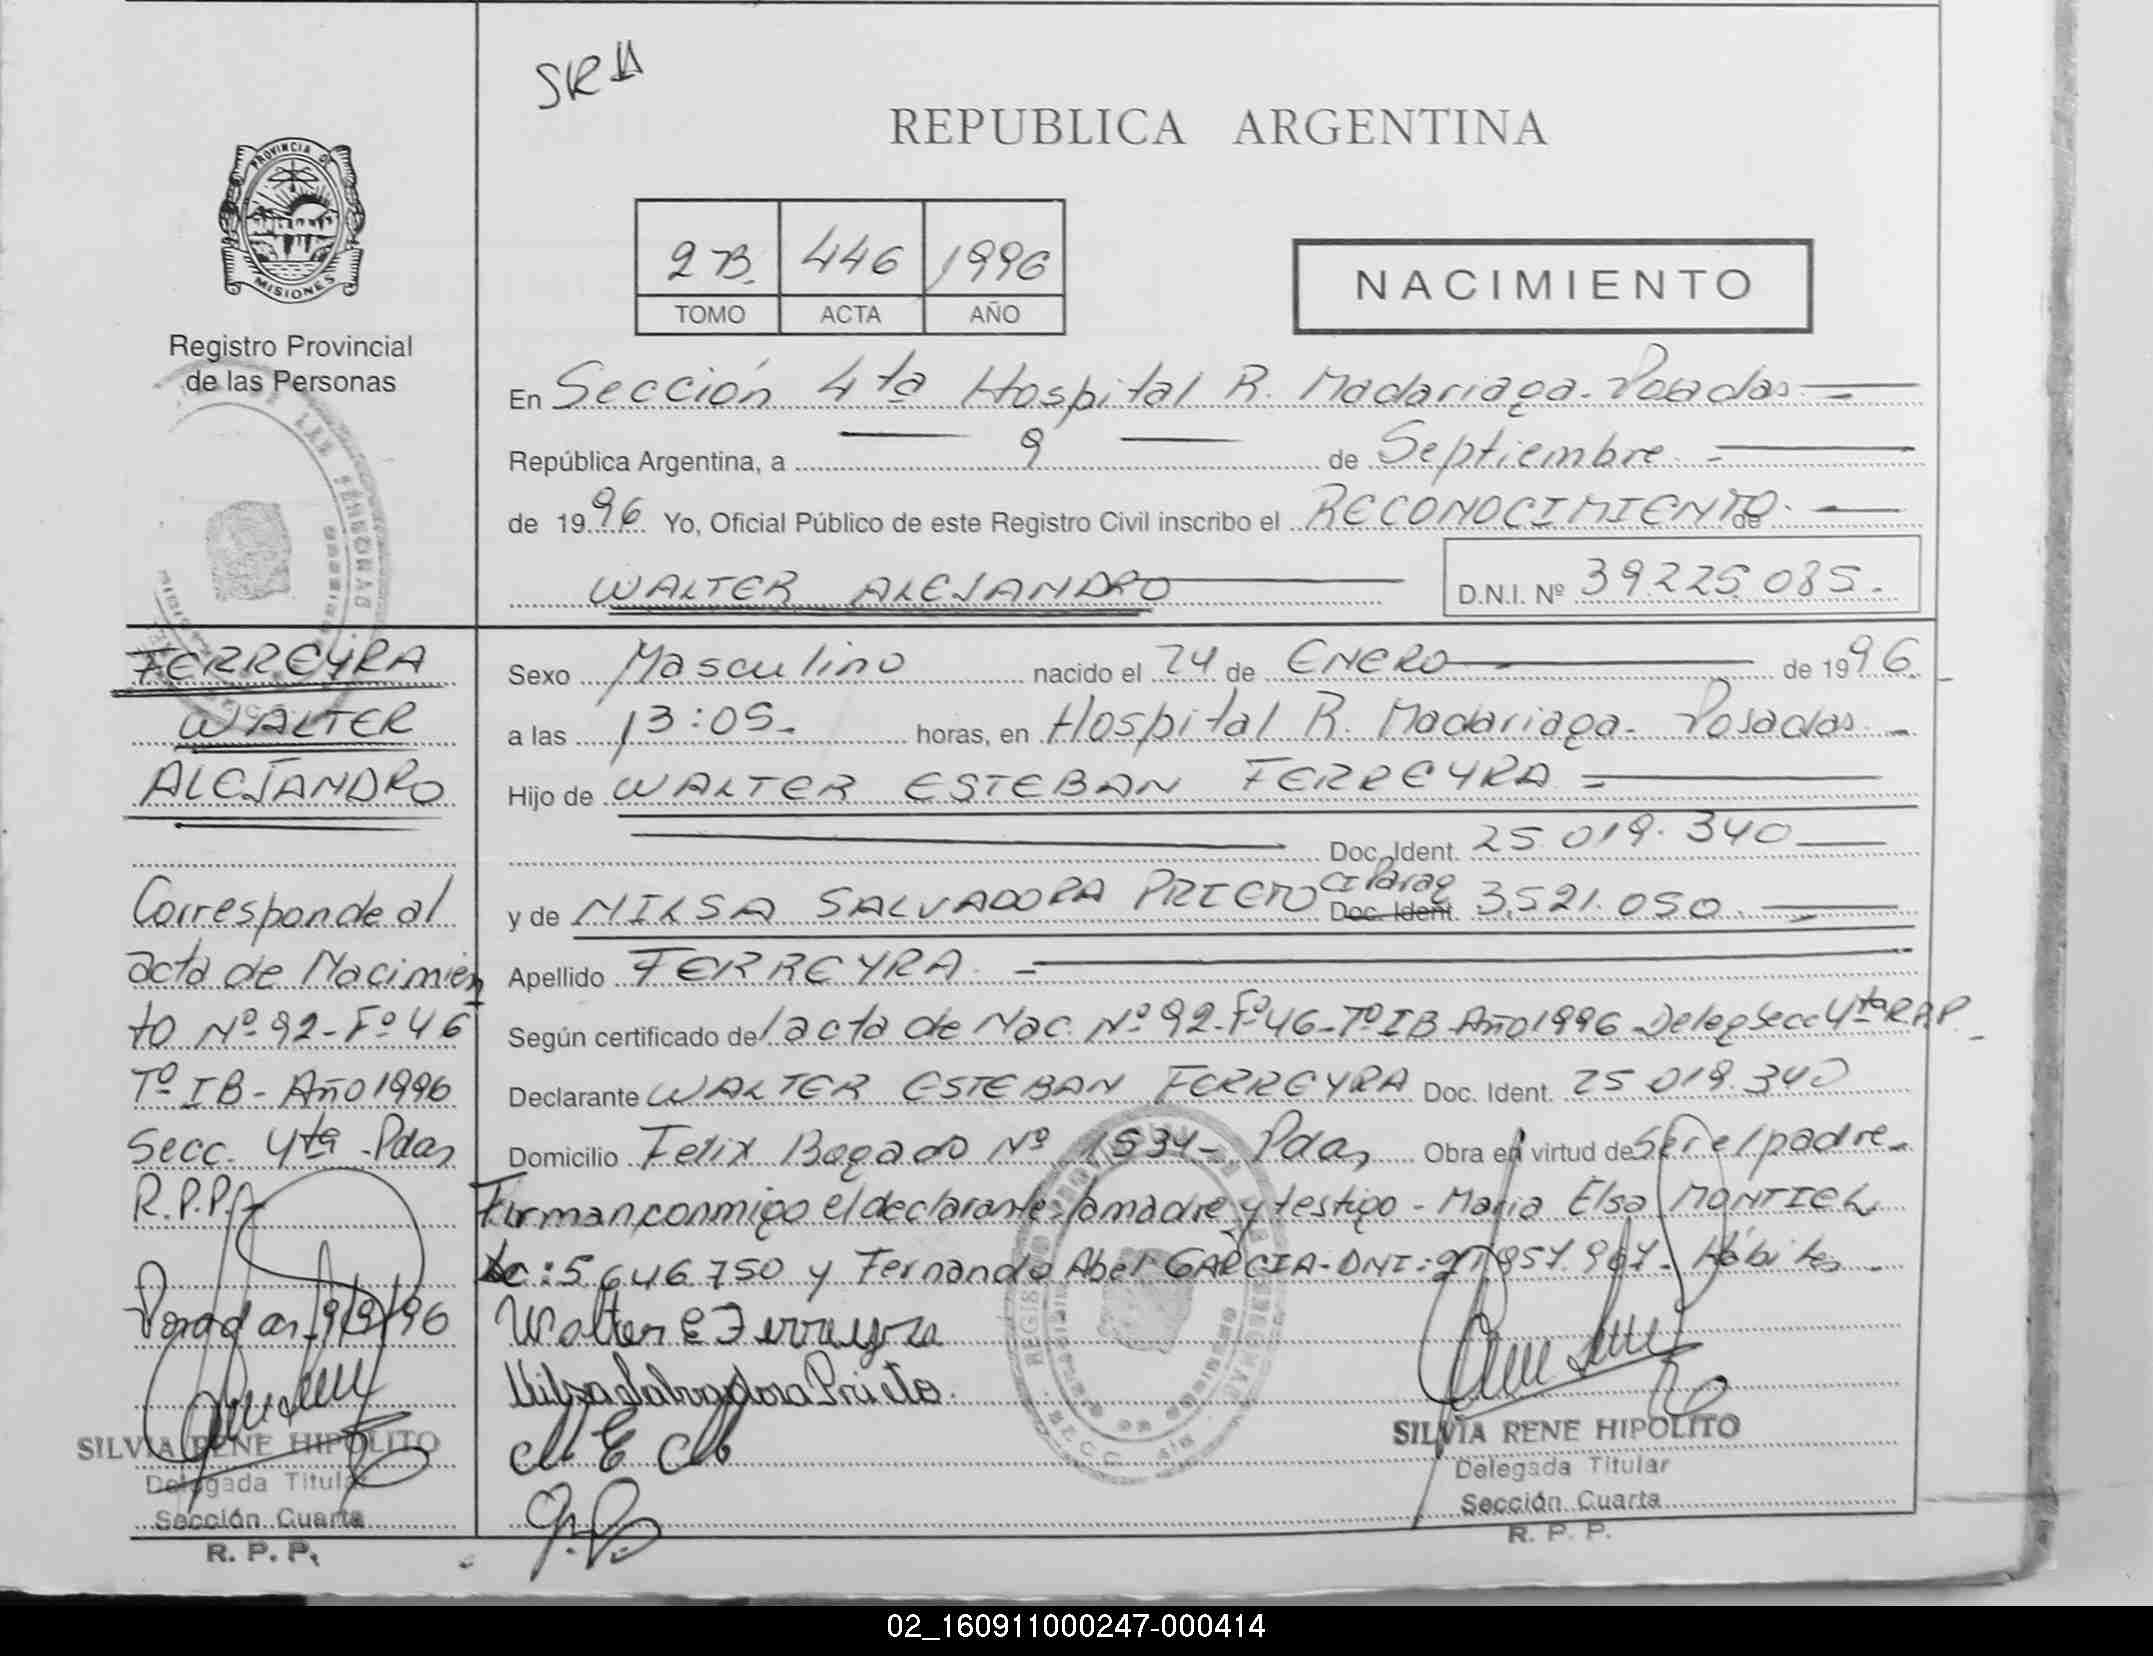 SRA
REPUBLICA ARGENTINA
PROVINCIA DE
MISIONES
2B. 446 1996
TOMO ACTA AÑO
NACIMIENTO
Registro Provincial
de las Personas
En Sección 4ta Hospital R. Madariaga - Posadas
República Argentina, a 9 de Septiembre
de 1996 Yo, Oficial Público de este Registro Civil inscribo el RECONOCIMIENTO de
WALTER ALEJANDRO D.N.I. Nº 39.225.085.
FERREYRA
WALTER
ALEJANDRO
Corresponde al
acta de Nacimien
to Nº 92 - Fº 46
Tº IB - Año 1996
Secc. 4ta - Pdas
R.P.P.
Posadas, 9/9/96
SILVIA RENE HIPOLITO
Delegada Titular
Sección Cuarta
R. P. P.
Sexo Masculino nacido el 24 de ENERO de 1996.
a las 13:05. horas, en Hospital R. Madariaga - Posadas
Hijo de WALTER ESTEBAN FERREYRA
Doc. Ident. 25.019.340
y de NILSA SALVADORA PRIETO Doc. Ident. CI Parag 3.521.050.
Apellido FERREYRA.
Según certificado de l acta de Nac. Nº 92 - Fº 46 - Tº IB - Año 1996 - Deleg Secc 4ta R.P.P.
Declarante WALTER ESTEBAN FERREYRA Doc. Ident. 25.019.340
Domicilio Felix Bogado Nº 1534 - Pdas Obra en virtud de Ser el padre.
Firman conmigo el declarante, la madre y testigo - Maria Elsa MONTIEL
Lc: 5.646.750 y Fernando Abel GARCIA - DNI: Hábiles.
Walter E Ferreyra
Nilsa Salvadora Prieto.
M E M
SILVIA RENE HIPOLITO
Delegada Titular
Sección Cuarta
R. P. P.
02_160911000247-000414